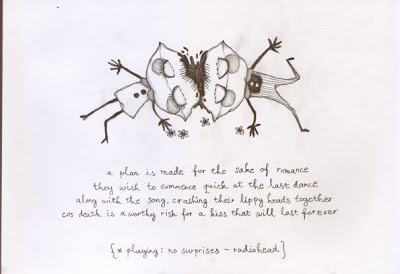 a plan is made for the sake of romance
they wish to commence quick at the last dance
along with the song, crashing their lippy heads together
cos death is a worthy risk for a kiss that will last forever
{* playing: no surprises - radiohead}